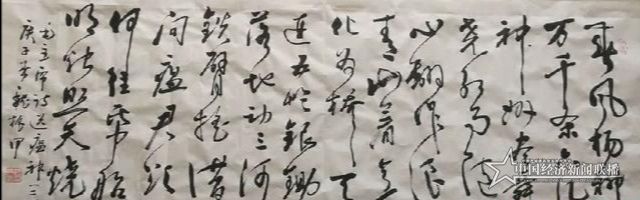 春风杨柳
万千条六亿
神州尽舜
尧红雨随
心翻作浪
青山着意
化为桥天
连五岭银锄
落地动三河
铁臂摇借
问瘟君欲
何往纸船
明烛照天烧
毛主席诗送瘟神二
庚子
中国经济新闻联播